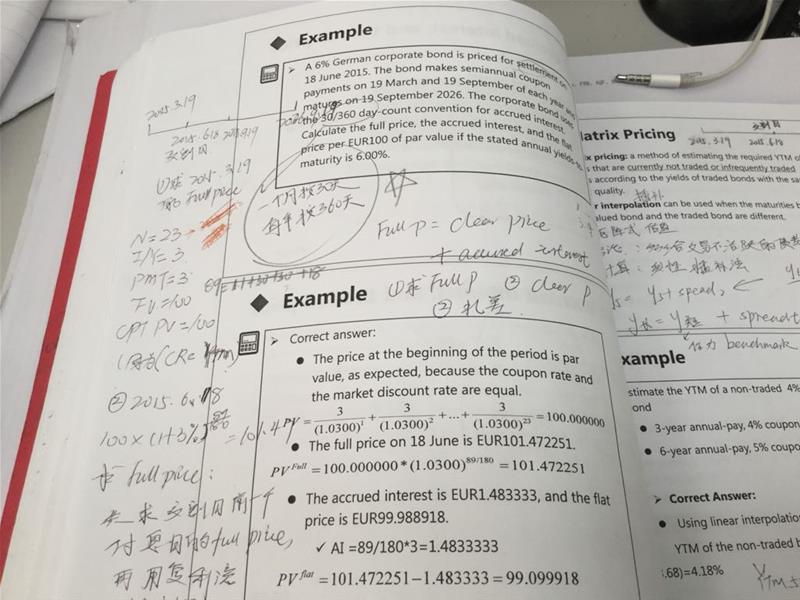 Example
A 6% German corporate bond is priced for settlement on
18 June 2015. The bond makes semiannual coupon
payments on 19 March and 19 September of each year and
matures on 19 September 2026. The corporate bond uses
the 30/360 day-count convention for accrued interest.
Calculate the full price, the accrued interest, and the flat
price per EUR100 of par value if the stated annual yield-to-
maturity is 6.00%.
2015.3.19
2015.6.18
交割日
①求 2015.3.19
的 Full price
N=23
I/Y=3
PMT=3
FV=100
CPT PV=100
一个月按30天
每年按360天
Full p = clear price
+ accrued interest
Example
①求 Full p ② clear p
Correct answer:
The price at the beginning of the period is par
value, as expected, because the coupon rate and
the market discount rate are equal.
PV = 3/(1.0300)^1 + 3/(1.0300)^2 + ... + 3/(1.0300)^23 = 100.000000
The full price on 18 June is EUR101.472251.
PV^Full = 100.000000*(1.0300)^89/180 = 101.472251
The accrued interest is EUR1.483333, and the flat
price is EUR99.988918.
✓ AI =89/180*3=1.4833333
PV^flat = 101.472251−1.483333 = 99.099918
② 2015.6.18
求 full price:
先求交割日前一个
付息日的full price,
再用复利法
atrix Pricing
交割日
2015.3.19 2015.6.18
x pricing: a method of estimating the required YTM of
s that are currently not traded or infrequently traded
s according to the yields of traded bonds with the sa
quality.
r interpolation can be used when the maturities b
alued bond and the traded bond are different.
+ spread
benchmark
xample
stimate the YTM of a non-traded 4%
ond
3-year annual-pay, 4% coupon
6-year annual-pay, 5% coupo
Correct Answer:
Using linear interpolatio
YTM of the non-traded b
.68)=4.18%